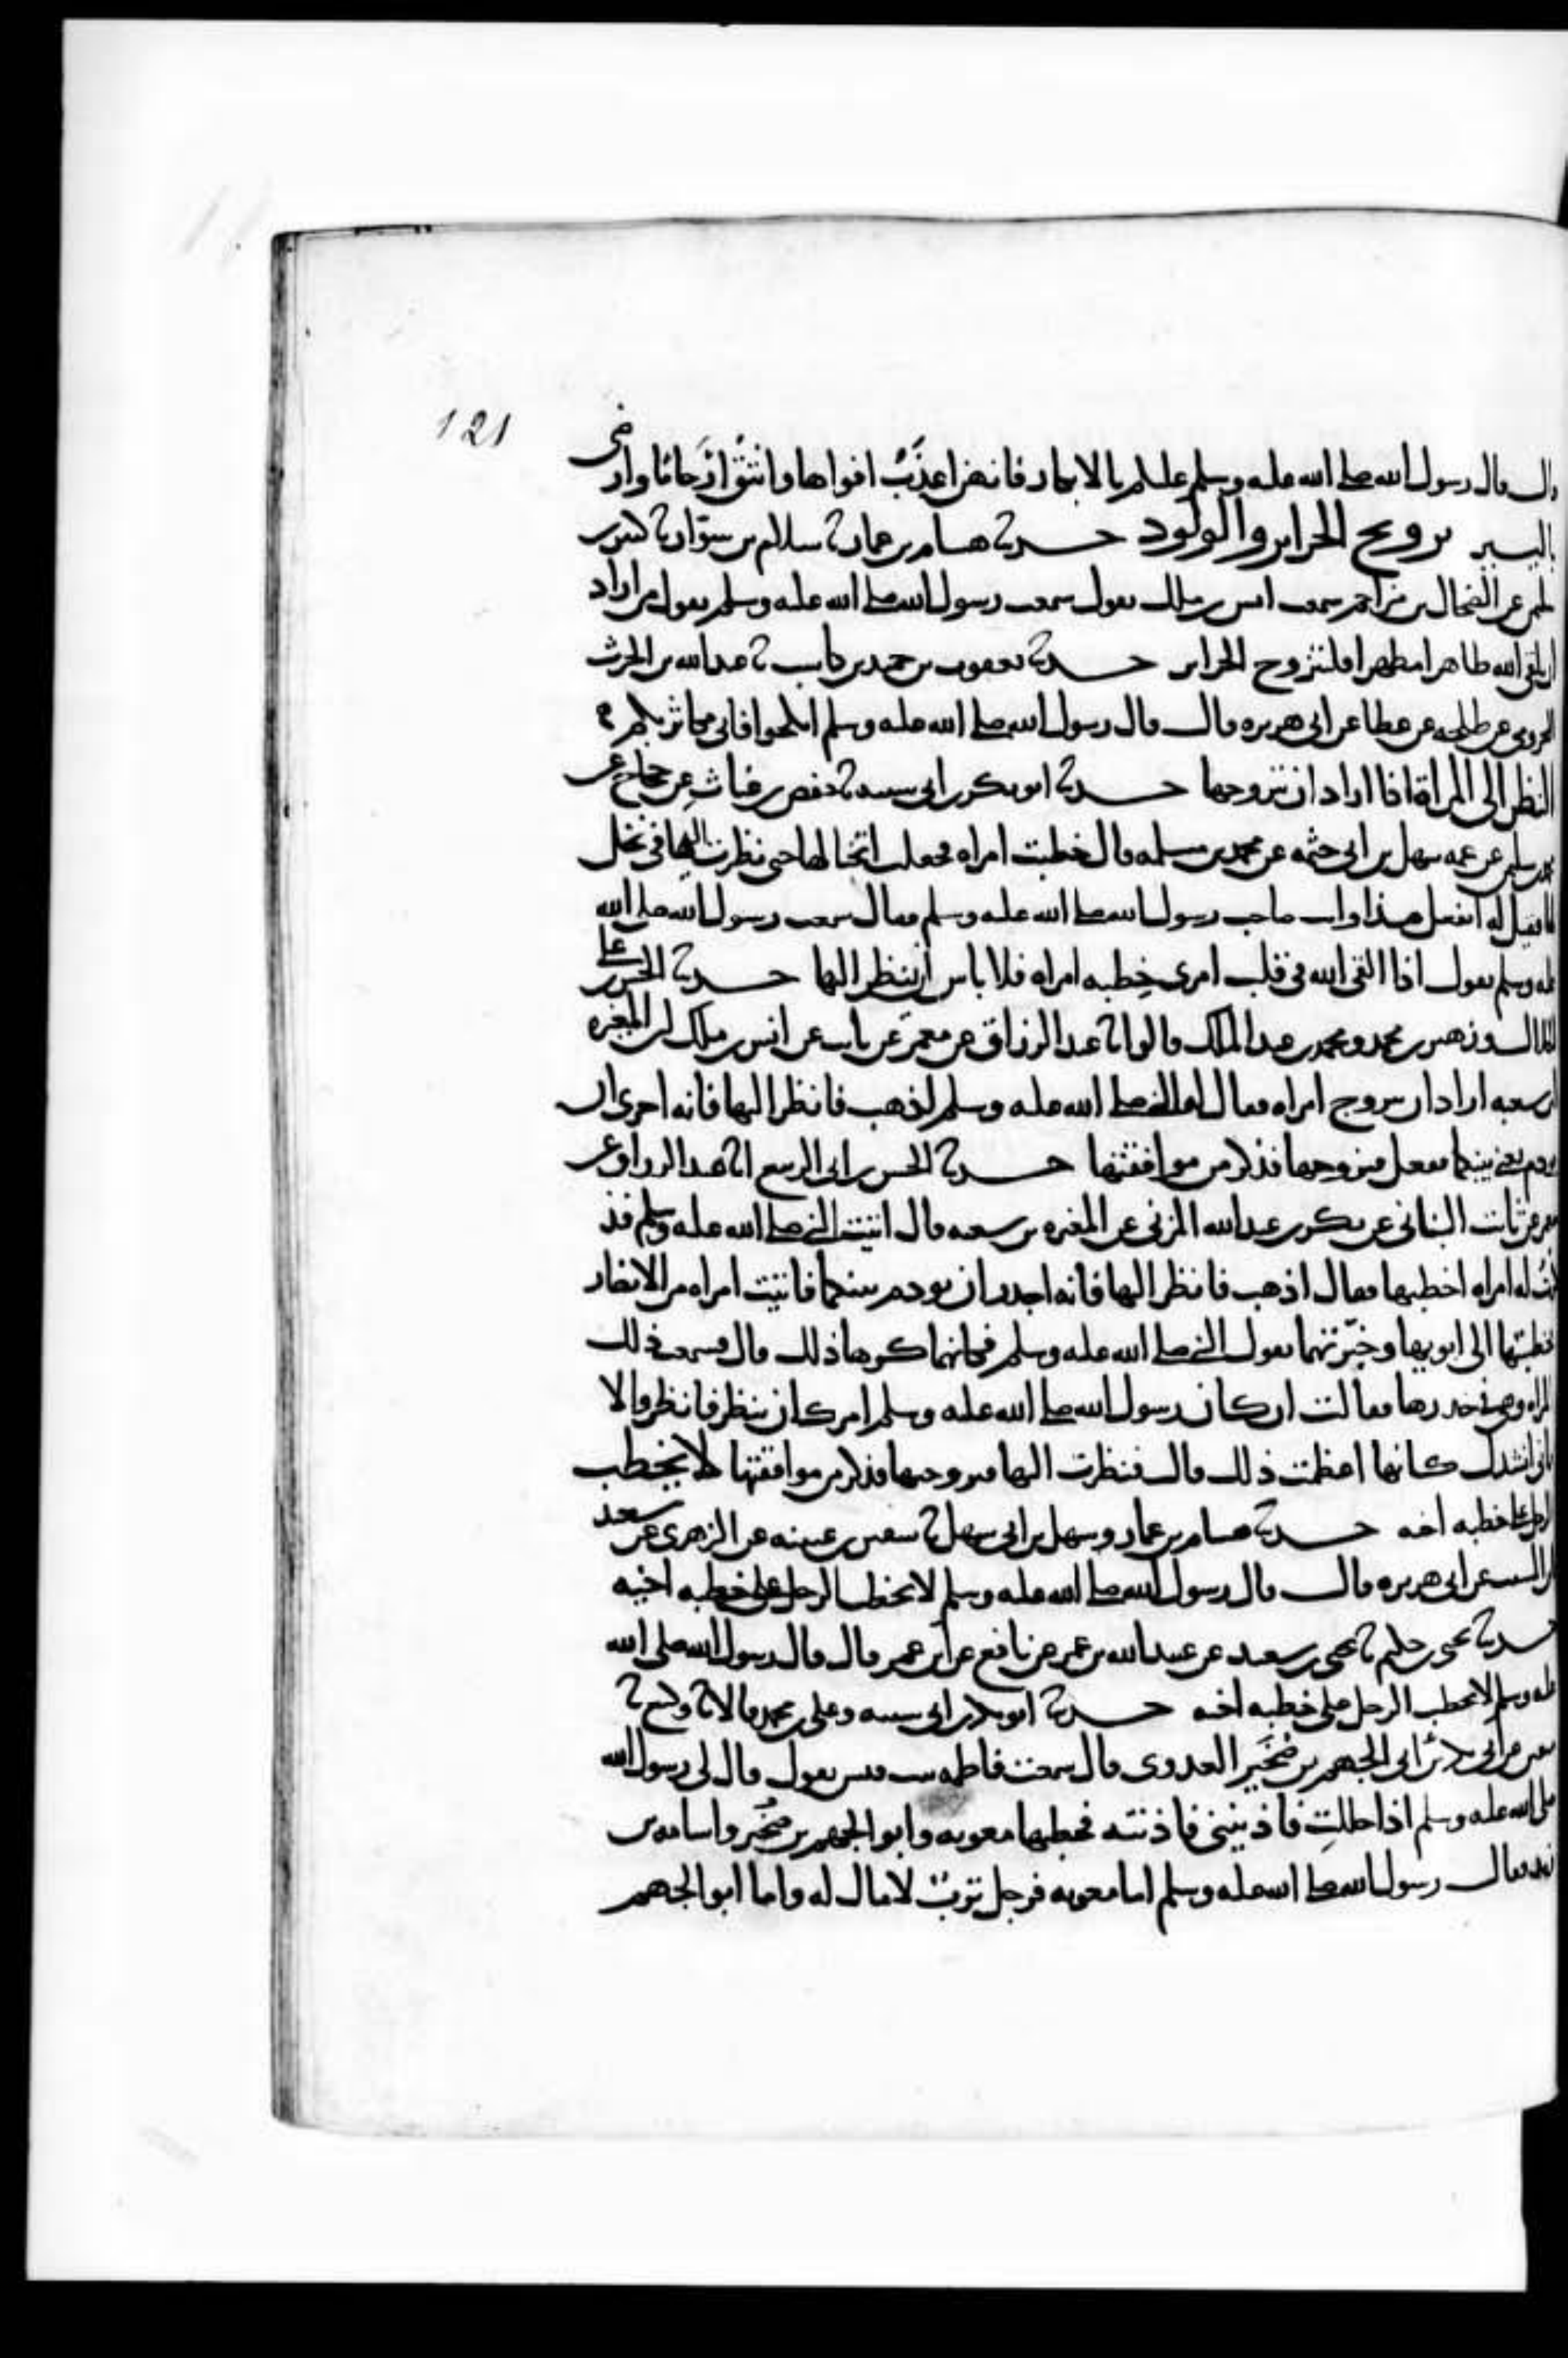 121
قال قال رسول الله صلى الله عليه وسلم عليكم بالابكار فانهن اعذب افواها وانتق ارحاما وارضى
باليسير تزويج الحراير والولود حدثنا هشام بن عمار ثنا سلام بن سوار ثنا كثير بن
سليم عن الضحاك بن مزاحم سمعت انس بن ملك يقول سمعت رسول الله صلى الله عليه وسلم يقول من اراد
ان يلقى الله طاهرا مطهرا فليتزوج الحراير حدثنا يعقوب بن حميد بن كاسب ثنا عبد الله بن الحرث
المخزومى عن طلحه عن عطا عن ابى هريره قال قال رسول الله صلى الله عليه وسلم انكحوا فانى مكاثر بكم
النظر الى المراة اذا اراد ان يتزوجها حدثنا ابو بكر بن ابى شيبه ثنا حفص بن غياث عن حجاج عن
محمد بن سليمن عن عمه سهل بن ابى حثمه عن محمد بن مسلمه قال خطبت امراه فجعلت اتخبا لها حتى نظرت اليها فى نخل
لها فقيل له اتفعل هذا وانت صاحب رسول الله صلى الله عليه وسلم فقال سمعت رسول الله صلى الله
عليه وسلم يقول اذا القى الله فى قلب امرى خطبه امراه فلا باس ان ينظر اليها حدثنا الحسن بن على
الخلال وزهير بن محمد ومحمد بن عبد الملك قالوا ثنا عبد الرزاق عن معمر عن ثابت عن انس بن ملك ان المغيره
ابن شعبه اراد ان يتزوج امراه فقال له النبى صلى الله عليه وسلم اذهب فانظر اليها فانه احرى ان
يودم بينكما ففعل فتزوجها فذكر من موافقتها حدثنا الحسن بن ابى الربيع انا عبد الرزاق عن
معمر عن ثابت البنانى عن بكر بن عبد الله المزنى عن المغيره بن شعبه قال اتيت النبى صلى الله عليه وسلم فذ
كرت له امراه اخطبها فقال اذهب فانظر اليها فانه اجدر ان يودم بينكما فاتيت امراه من الانصار
فخطبتها الى ابويها وخبرتهما بقول النبى صلى الله عليه وسلم فكانهما كرها ذلك قال فسمعت ذلك
المراه وهى فى خدرها فقالت ان كان رسول الله صلى الله عليه وسلم امرك ان تنظر فانظر والا
فانى انشدك كانها اعظمت ذلك قال فنظرت اليها فتزوجتها فذكر من موافقتها لا يخطب
الرجل على خطبه اخيه حدثنا هشام بن عمار وسهل بن ابى سهل ثنا سفين بن عيينه عن الزهرى عن سعيد
ابن المسيب عن ابى هريره قال قال رسول الله صلى الله عليه وسلم لا يخطب الرجل على خطبه اخيه
حدثنا يحيى بن حكيم ثنا يحيى بن سعيد عن عبيد الله بن عمر عن نافع عن ابن عمر قال قال رسول الله صلى الله
عليه وسلم لا يخطب الرجل على خطبه اخيه حدثنا ابو بكر بن ابى شيبه وعلى بن محمد قالا ثنا وكيع ثنا
سفين عن ابى بكر بن ابى الجهم بن صخير العدوى قال سمعت فاطمه بنت قيس تقول قال لى رسول الله
صلى الله عليه وسلم اذا حللت فاذنينى فاذنته فخطبها معويه وابو الجهم بن صخير واسامه بن
زيد فقال رسول الله صلى الله عليه وسلم اما معويه فرجل ترب لا مال له واما ابو الجهم